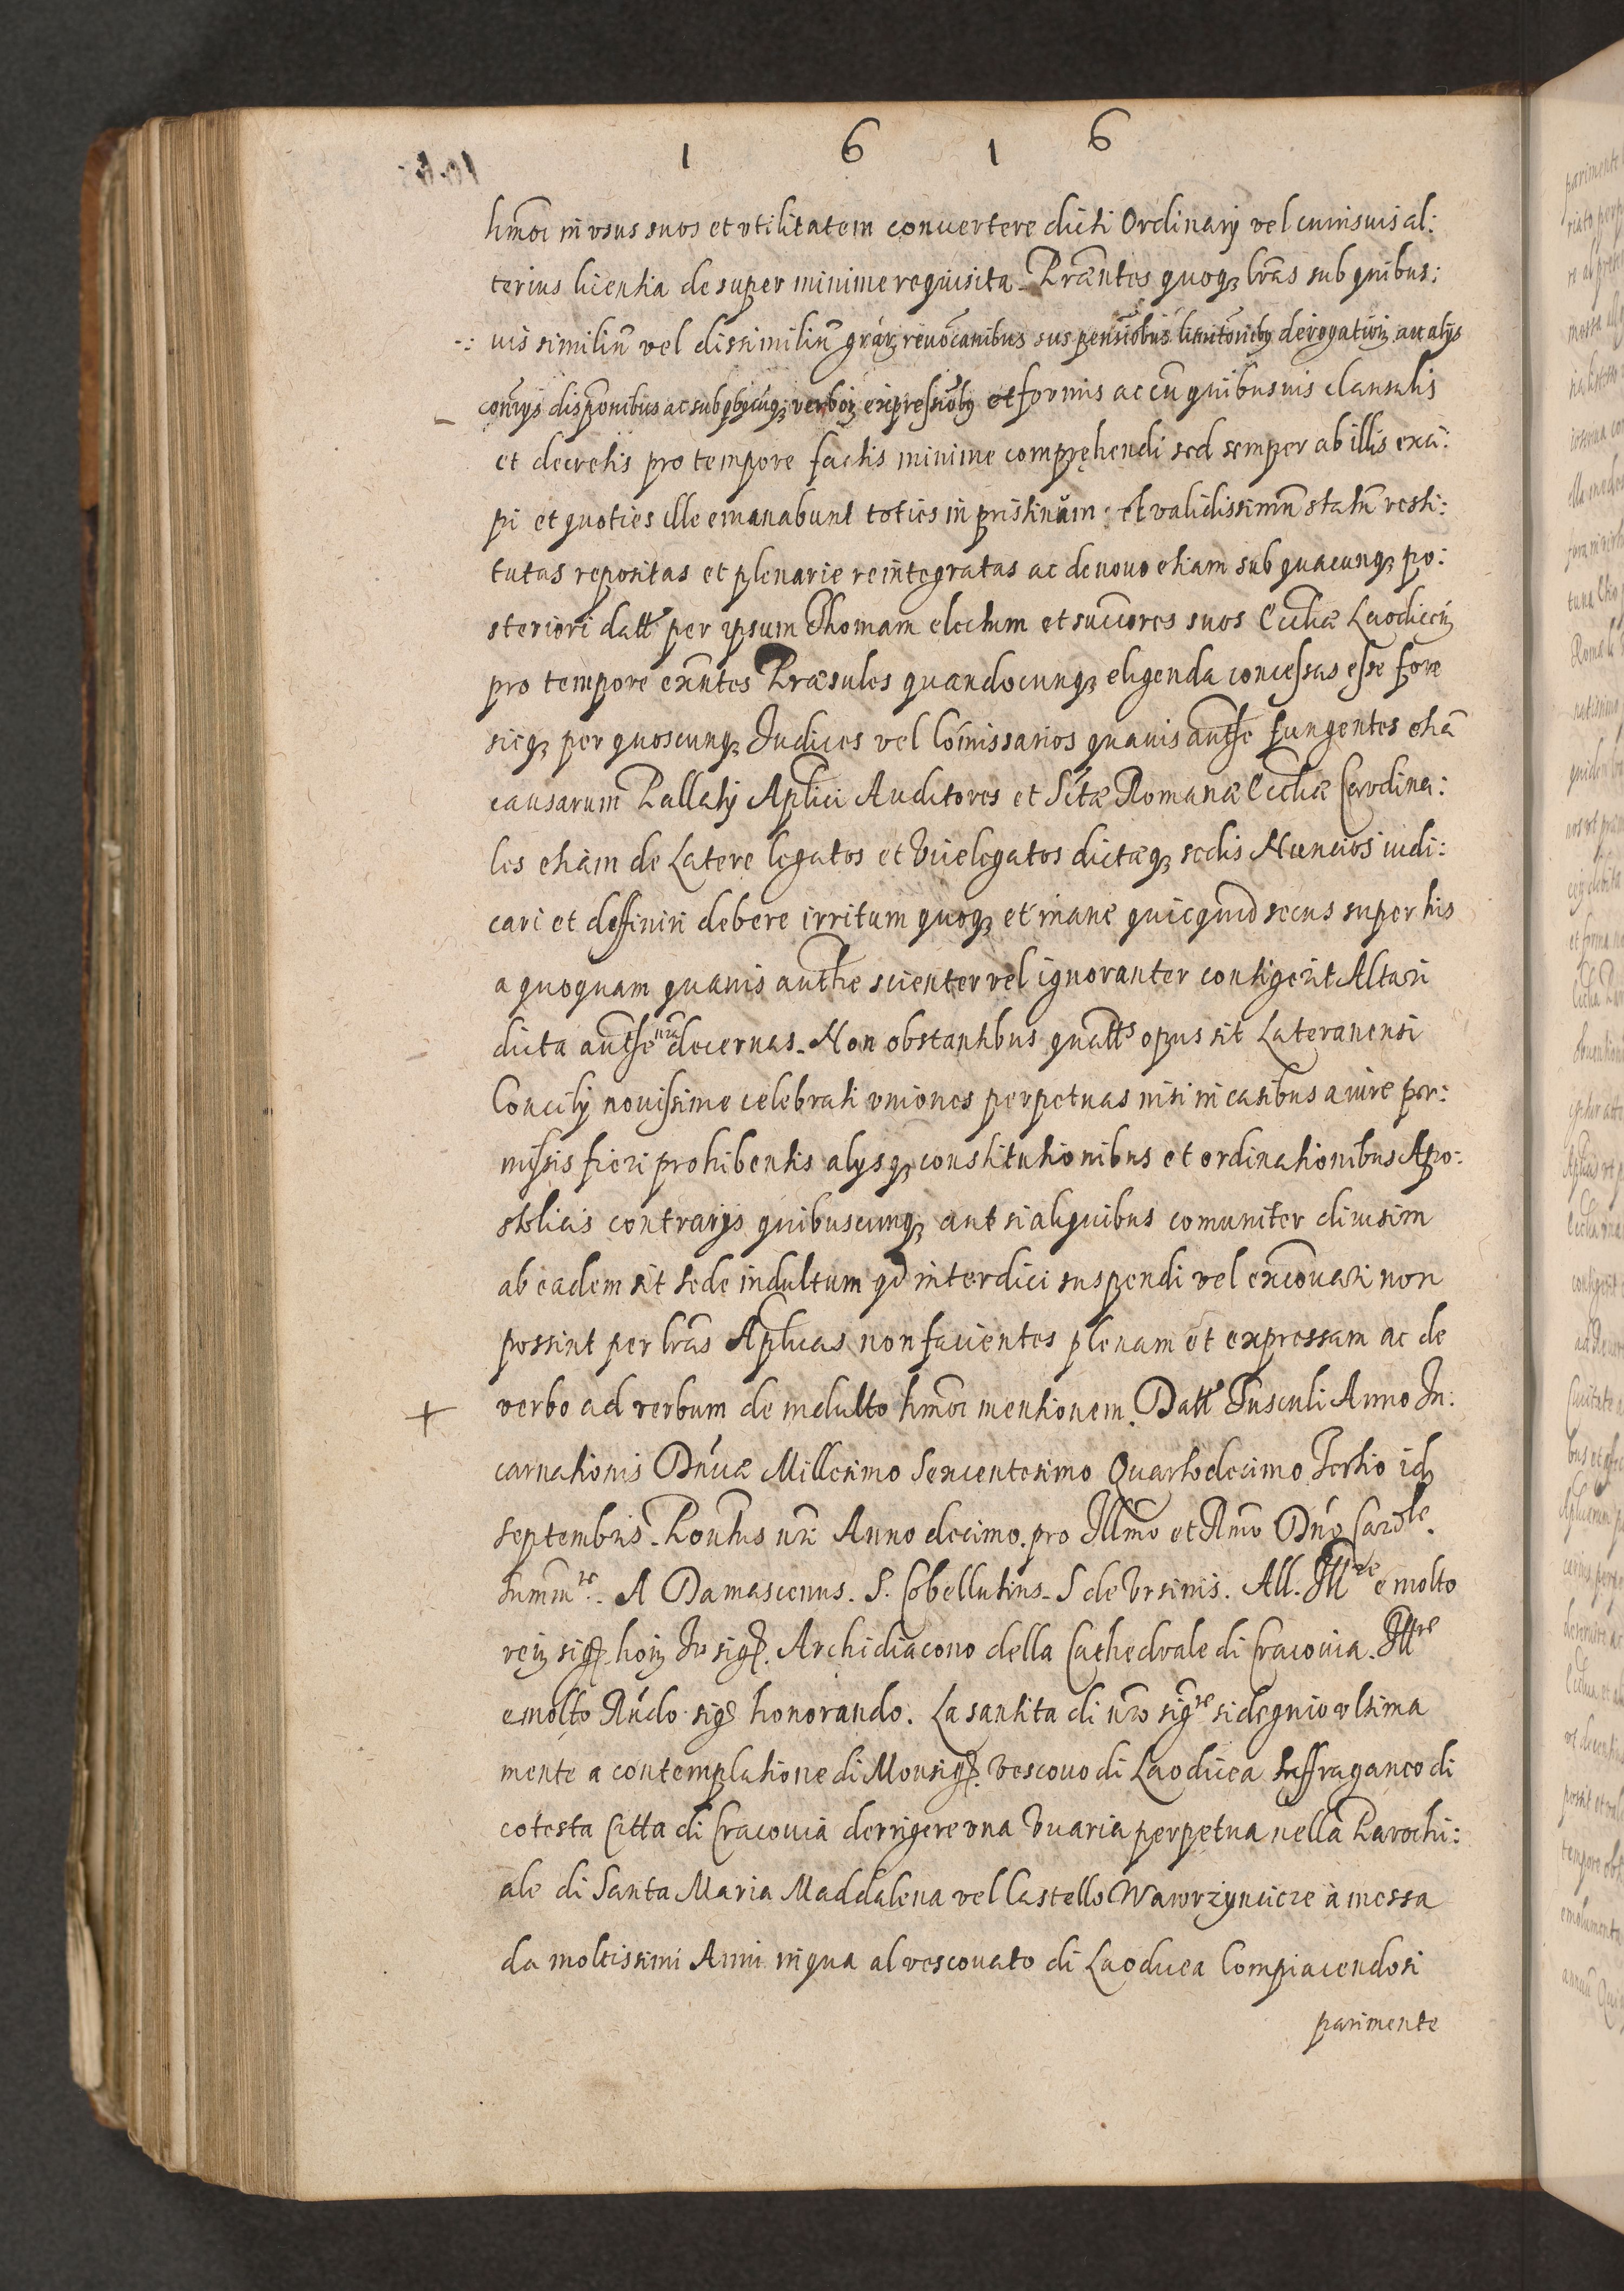 1 6 1 6
hm̃oi in vsus suos et vtilitatem conuertere dicti Ordinarij vel cuiusuis al:
terius licentia de super minime requisita. Præntes quoq; lr̃as sub quibus:
uis similiũ vel dissimiliũ grar; reuõcanibus suspensiõbus limitõnibq; derogatiõn; ac alijs
conrijs dispõnibus ac sub qbuscũq; verbor; expressiõbq; et formis ac cũ quibusuis clausulis
et decretis pro tempore factis minime compręhendi sed semper ab illis exci:
pi et quoties ille emanabunt toties in pristinum et validissimũ statũ resti:
tutas repositas et plenarie reintegratas ac de nouo etiam sub quacunq; po:
steriori datt per ipsum Thomam electum et succores suos Ecclæ Laodiceñ
pro tempore exñtes Præsules quandocunq; eligenda concessas esse fore
sicq; per quoscunq; Judices vel Comissarios quauis authe fungentes etiã
causarum Pallatij Aplici Auditores et Sctæ Romanæ Ecclæ Cardina:
les etiam de Latere legatos et Vicelegatos dictæq; sedis Nuncios iudi:
cari et deffiniri debere irritum quoq; et inane quicquid secus super his
a quoquam quauis authe scienter vel ignoranter contigerit Altari
dicta authe nrã decernas. Non obstantibus quatts opus sit Lateranensi
Concilij nouissime celebrati vniones perpetuas nisi in casibus a iure per:
missis fieri prohibentis alijsq; constitutionibus et ordinationibus Apo:
stolicis contrarijs quibuscunq; aut si aliquibus comuniter diuisim
ab eadem sit sede indultum qd interdici suspendi vel excõuari non
possint per lr̃as Aplicas non facientes plenam et expressam ac de
verbo ad verbum de indulto hm̃oi mentionem. Datt Tusculi Anno In:
carnationis Dnícæ Millesimo Sexcentesimo Quartodecimo Tertio id;
Septembris. Pontus nri Anno decimo. pro Illmo et Rmo Dno Cardle.
Summre. A Damascenus. S. Cobellutius. S de Vrsinis. All. Illre e molto
reu; sigr. hon; Jl sigr. Archidiacono della Cathedrale di Cracouia. Illre
e molto Rńdo sigr honorando. La santita di nro sigre si degnio vltima
mente a contemplatione di Monsigr. Vescouo di Laodicea Suffraganeo di
cotesta Citta di Cracouia derrigere vna Vicaria perpetua nella Parochi:
ale di Santa Maria Maddalena vel Castello Wawrzyncicze à messa
da moltissimi Anni in qua al vescouato di Laodicea Compiacendosi
parimente